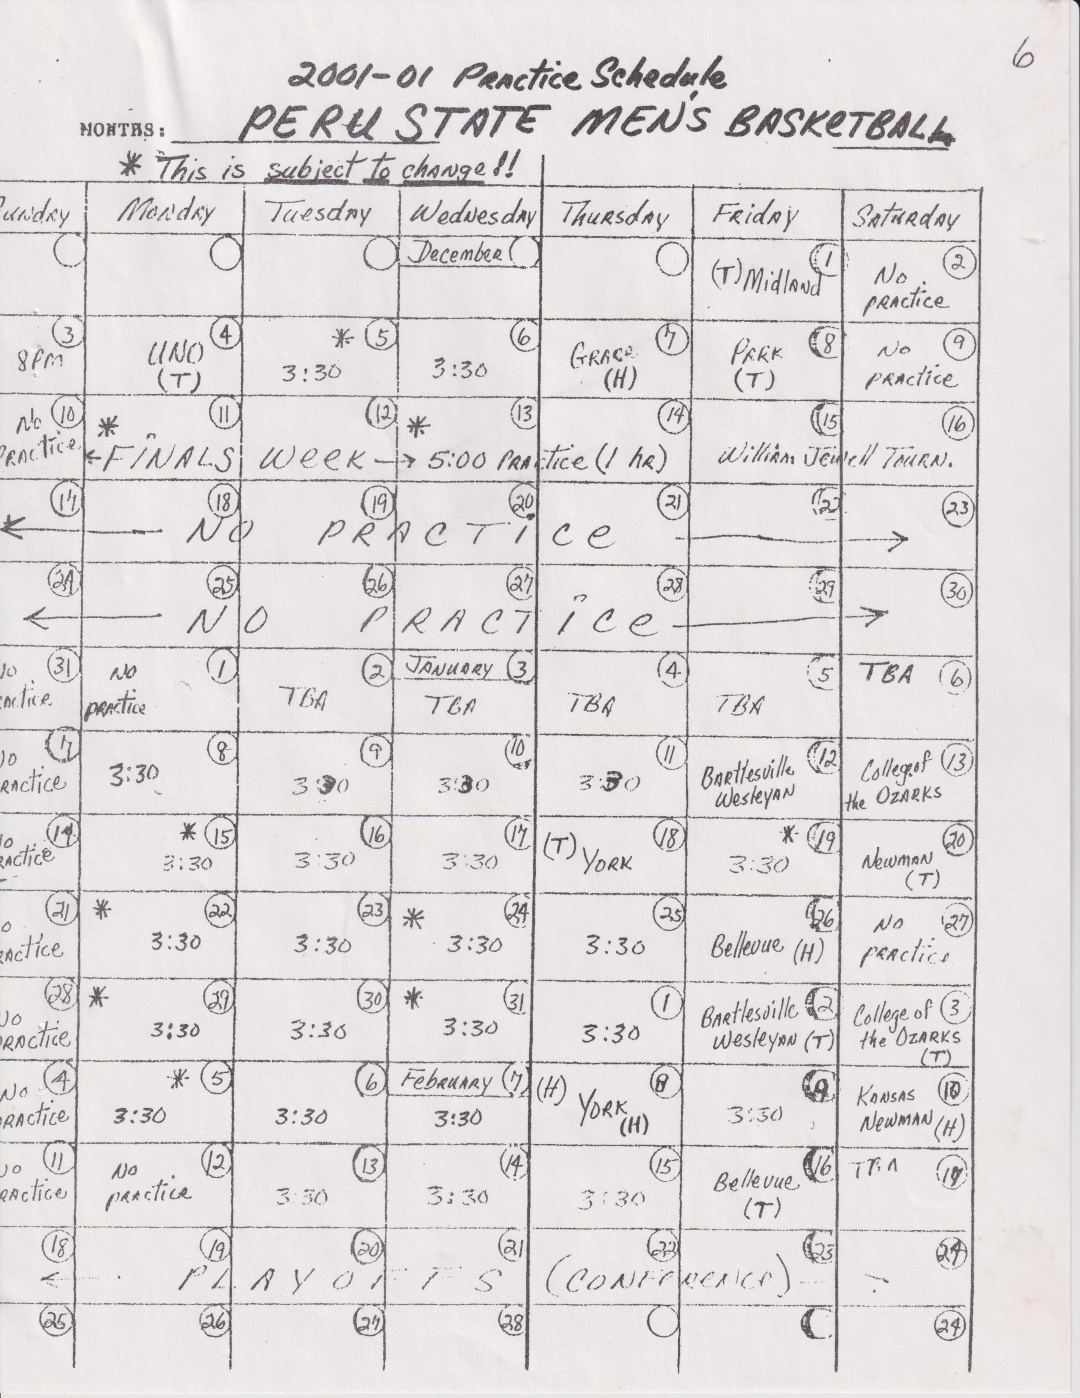 6
2001-01 Practice Schedule
MONTHS: PERU STATE MEN'S BASKETBALL
* This is subject to change!!
unday Monday Tuesday Wednesday Thursday Friday Saturday
December 1 2
(T) Midland No practice
3 4 * 5 6 7 8 9
8pm UNO (T) 3:30 3:30 Grace (H) Park (T) No practice
10 * 11 12 * 13 14 15 16
No Practice ← FINALS Week → 5:00 Practice (1 hr) William Jewell Tourn.
17 18 19 20 21 22 23
← NO PRACTice →
24 25 26 27 28 29 30
← NO PRACTice →
31 1 2 January 3 4 5 6
No practice TBA TBA TBA TBA TBA
7 8 9 10 11 12 13
ractice 3:30 3:30 3:30 3:30 Bartlesville Wesleyan College of the Ozarks
14 * 15 16 17 18 * 19 20
ractice 3:30 3:30 3:30 (T) York 3:30 Newman (T)
21 * 22 23 * 24 25 26 27
ractice 3:30 3:30 3:30 3:30 Bellevue (H) No practice
28 * 29 30 * 31 1 2 3
No practice 3:30 3:30 3:30 3:30 Bartlesville Wesleyan (T) College of the Ozarks (T)
4 * 5 6 February 7 8 9 10
No practice 3:30 3:30 3:30 (H) York (H) 3:30 Kansas Newman (H)
11 12 13 14 15 16 17
ractice No practice 3:30 3:30 3:30 Bellevue (T) TBA
18 19 20 21 22 23 24
← PLAYOFFS (CONFERENCE) →
25 26 27 28 24